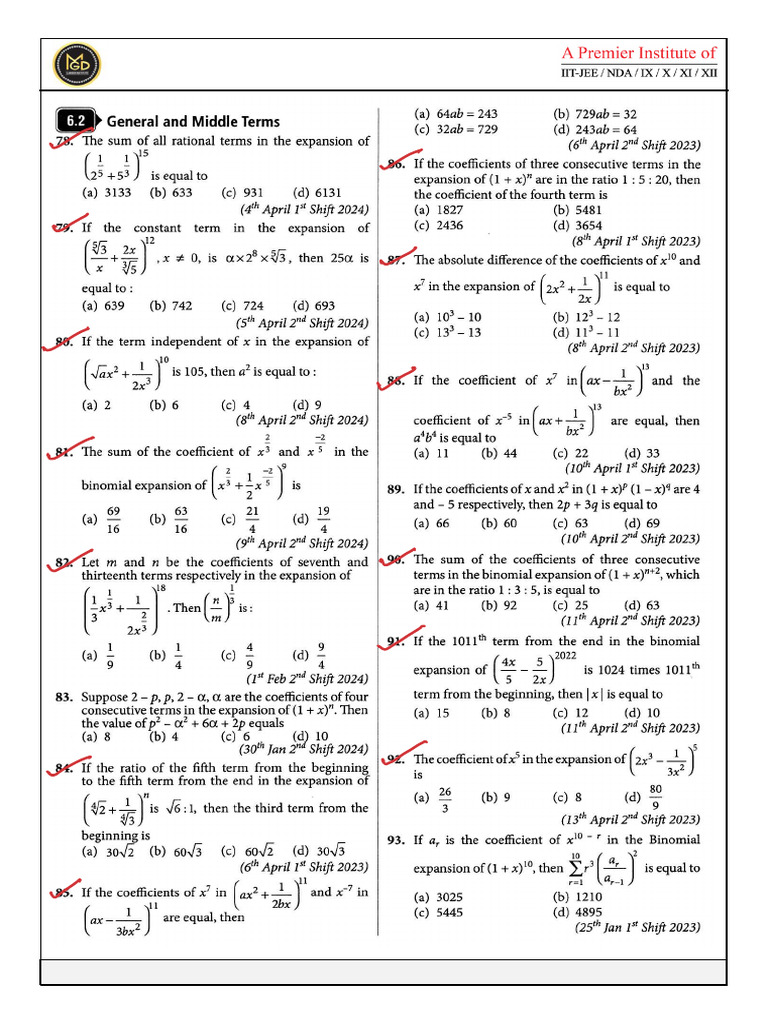 MGD
A Premier Institute of
IIT-JEE / NDA / IX / X / XI / XII
6.2 General and Middle Terms
78. The sum of all rational terms in the expansion of
(2^(1/5) + 5^(1/3))^15 is equal to
(a) 3133 (b) 633 (c) 931 (d) 6131
(4th April 1st Shift 2024)
79. If the constant term in the expansion of
(⁵√3/x + 2x/³√5)^12, x ≠ 0, is α×2^8×⁵√3, then 25α is
equal to :
(a) 639 (b) 742 (c) 724 (d) 693
(5th April 2nd Shift 2024)
80. If the term independent of x in the expansion of
(√a x² + 1/2x³)^10 is 105, then a² is equal to :
(a) 2 (b) 6 (c) 4 (d) 9
(8th April 2nd Shift 2024)
81. The sum of the coefficient of x^(2/3) and x^(-2/5) in the
binomial expansion of (x^(2/3) + 1/2 x^(-2/5))^9 is
(a) 69/16 (b) 63/16 (c) 21/4 (d) 19/4
(9th April 2nd Shift 2024)
82. Let m and n be the coefficients of seventh and
thirteenth terms respectively in the expansion of
(1/3 x^(1/3) + 1/2x^(2/3))^18. Then (n/m)^(1/3) is :
(a) 1/9 (b) 1/4 (c) 4/9 (d) 9/4
(1st Feb 2nd Shift 2024)
83. Suppose 2 – p, p, 2 – α, α are the coefficients of four
consecutive terms in the expansion of (1 + x)^n. Then
the value of p² – α² + 6α + 2p equals
(a) 8 (b) 4 (c) 6 (d) 10
(30th Jan 2nd Shift 2024)
84. If the ratio of the fifth term from the beginning
to the fifth term from the end in the expansion of
(⁴√2 + 1/⁴√3)^n is √6 : 1, then the third term from the
beginning is
(a) 30√2 (b) 60√3 (c) 60√2 (d) 30√3
(6th April 1st Shift 2023)
85. If the coefficients of x^7 in (ax² + 1/2bx)^11 and x^–7 in
(ax – 1/3bx²)^11 are equal, then
(a) 64ab = 243 (b) 729ab = 32
(c) 32ab = 729 (d) 243ab = 64
(6th April 2nd Shift 2023)
86. If the coefficients of three consecutive terms in the
expansion of (1 + x)^n are in the ratio 1 : 5 : 20, then
the coefficient of the fourth term is
(a) 1827 (b) 5481
(c) 2436 (d) 3654
(8th April 1st Shift 2023)
87. The absolute difference of the coefficients of x^10 and
x^7 in the expansion of (2x² + 1/2x)^11 is equal to
(a) 10³ – 10 (b) 12³ – 12
(c) 13³ – 13 (d) 11³ – 11
(8th April 2nd Shift 2023)
88. If the coefficient of x^7 in (ax – 1/bx²)^13 and the
coefficient of x^–5 in (ax + 1/bx²)^13 are equal, then
a⁴b⁴ is equal to
(a) 11 (b) 44 (c) 22 (d) 33
(10th April 1st Shift 2023)
89. If the coefficients of x and x² in (1 + x)^p (1 – x)^q are 4
and – 5 respectively, then 2p + 3q is equal to
(a) 66 (b) 60 (c) 63 (d) 69
(10th April 2nd Shift 2023)
90. The sum of the coefficients of three consecutive
terms in the binomial expansion of (1 + x)^(n+2), which
are in the ratio 1 : 3 : 5, is equal to
(a) 41 (b) 92 (c) 25 (d) 63
(11th April 1st Shift 2023)
91. If the 1011th term from the end in the binomial
expansion of (4x/5 – 5/2x)^2022 is 1024 times 1011th
term from the beginning, then |x| is equal to
(a) 15 (b) 8 (c) 12 (d) 10
(11th April 2nd Shift 2023)
92. The coefficient of x^5 in the expansion of (2x³ – 1/3x²)^5
is
(a) 26/3 (b) 9 (c) 8 (d) 80/9
(13th April 2nd Shift 2023)
93. If a_r is the coefficient of x^(10 – r) in the Binomial
expansion of (1 + x)^10, then ∑_(r=1)^10 r³ (a_r/a_(r–1))² is equal to
(a) 3025 (b) 1210
(c) 5445 (d) 4895
(25th Jan 1st Shift 2023)